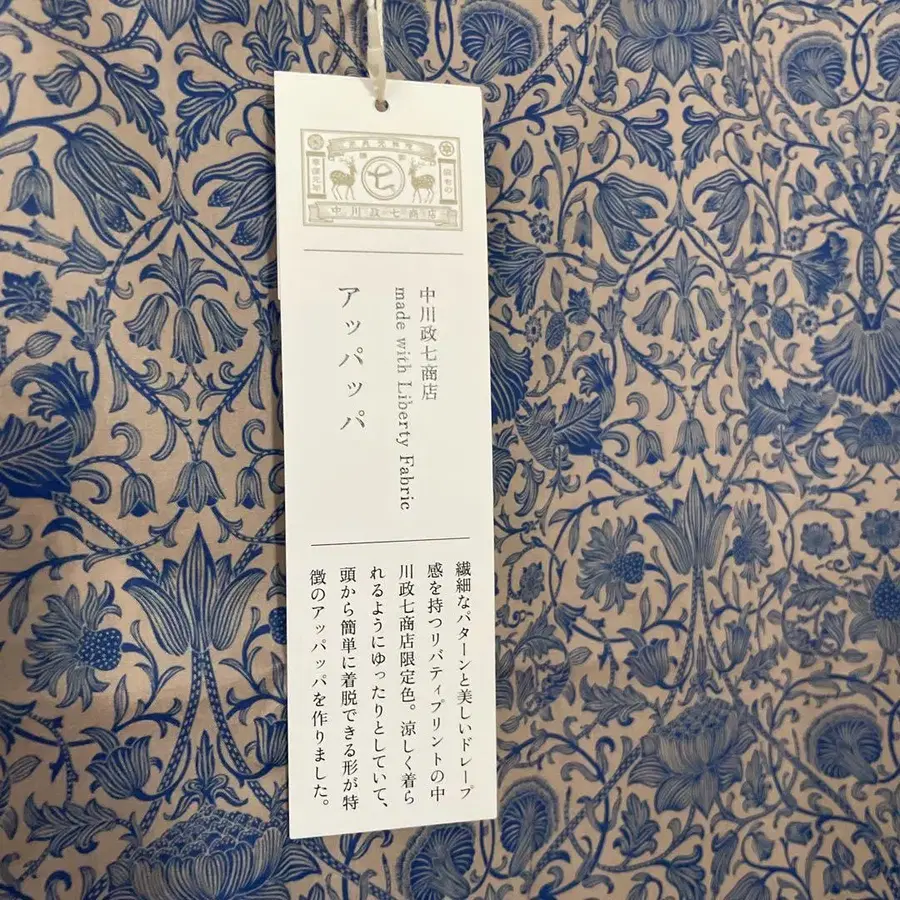 中川政七商店
中川政七商店
made with Liberty Fabric
アッパッパ
繊細なパターンと美しいドレープ
感を持つリバティプリントの中
川政七商店限定色。涼しく着ら
れるようにゆったりとしていて、
頭から簡単に着脱できる形が特
徴のアッパッパを作りました。